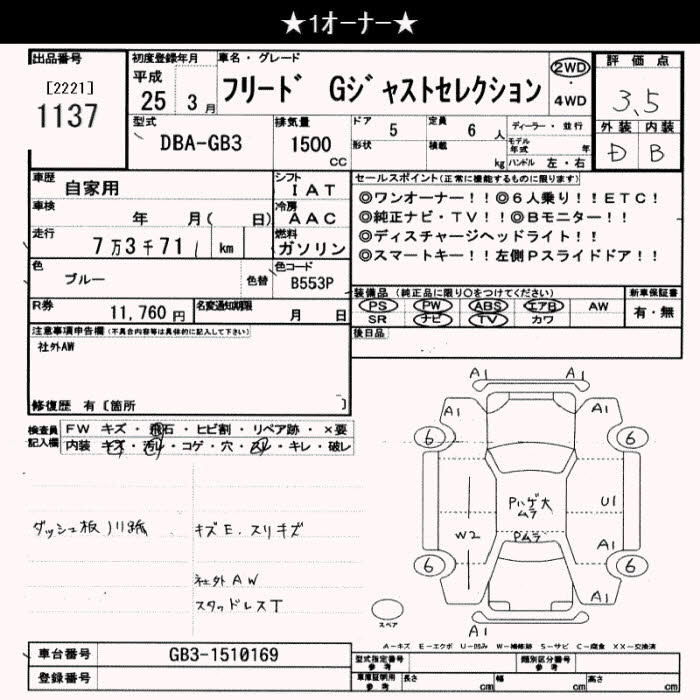 ★1ｵｰﾅｰ★
出品番号
[2221]
1137
初度登録年月
平成
25 3月
車名・グレード
フリード Gジャストセレクション
2WD
・
4WD
評価点
3.5
外装 内装
D B
型式
DBA-GB3
排気量
1500
cc
ドア
5
形状
定員
6 人
積載
kg
ディーラー・並行
モデル年式 年
ハンドル 左・右
車歴
自家用
シフト
IAT
車検
年 月( 日)
冷房
AAC
走行
7万3千71 km
燃料
ガソリン
色
ブルー
色替
色コード
B553P
R券
11,760円
名変通知期限
月 日
セールスポイント(正常に機能するものに限ります)
◎ワンオーナー！！◎6人乗り！！ETC！
◎純正ナビ・TV！！◎Bモニター！！
◎ディスチャージヘッドライト！！
◎スマートキー！！左側Pスライドドア！！
装備品(純正品に限り○をつけてください)
PS PW ABS エアB AW
SR ナビ TV カワ
新車保証書
有・無
後日品
注意事項申告欄(不具合内容等は具体的に記入して下さい)
社外AW
修復歴 有〔箇所 〕
検査員
記入欄
FW キズ・飛石・ヒビ割・リペア跡・×要
内装 キズ・汚れ・コゲ・穴・スレ・キレ・破レ
キズE.スリキズ
社外AW
スタッドレスT
A1 A1
A1 A1
6 6
Pハゲ大
ムラ
U1
W2
Pムラ
A1
6 6
A1
A1
スペア
A-キズ E-エクボ U-凹み W-補修跡 S-サビ C-腐食 XX-交換済
車台番号
GB3-1510169
登録番号
型式指定番号
参考
類別区分番号
参考
車庫証明用
参考
長さ cm
幅 cm
高さ cm